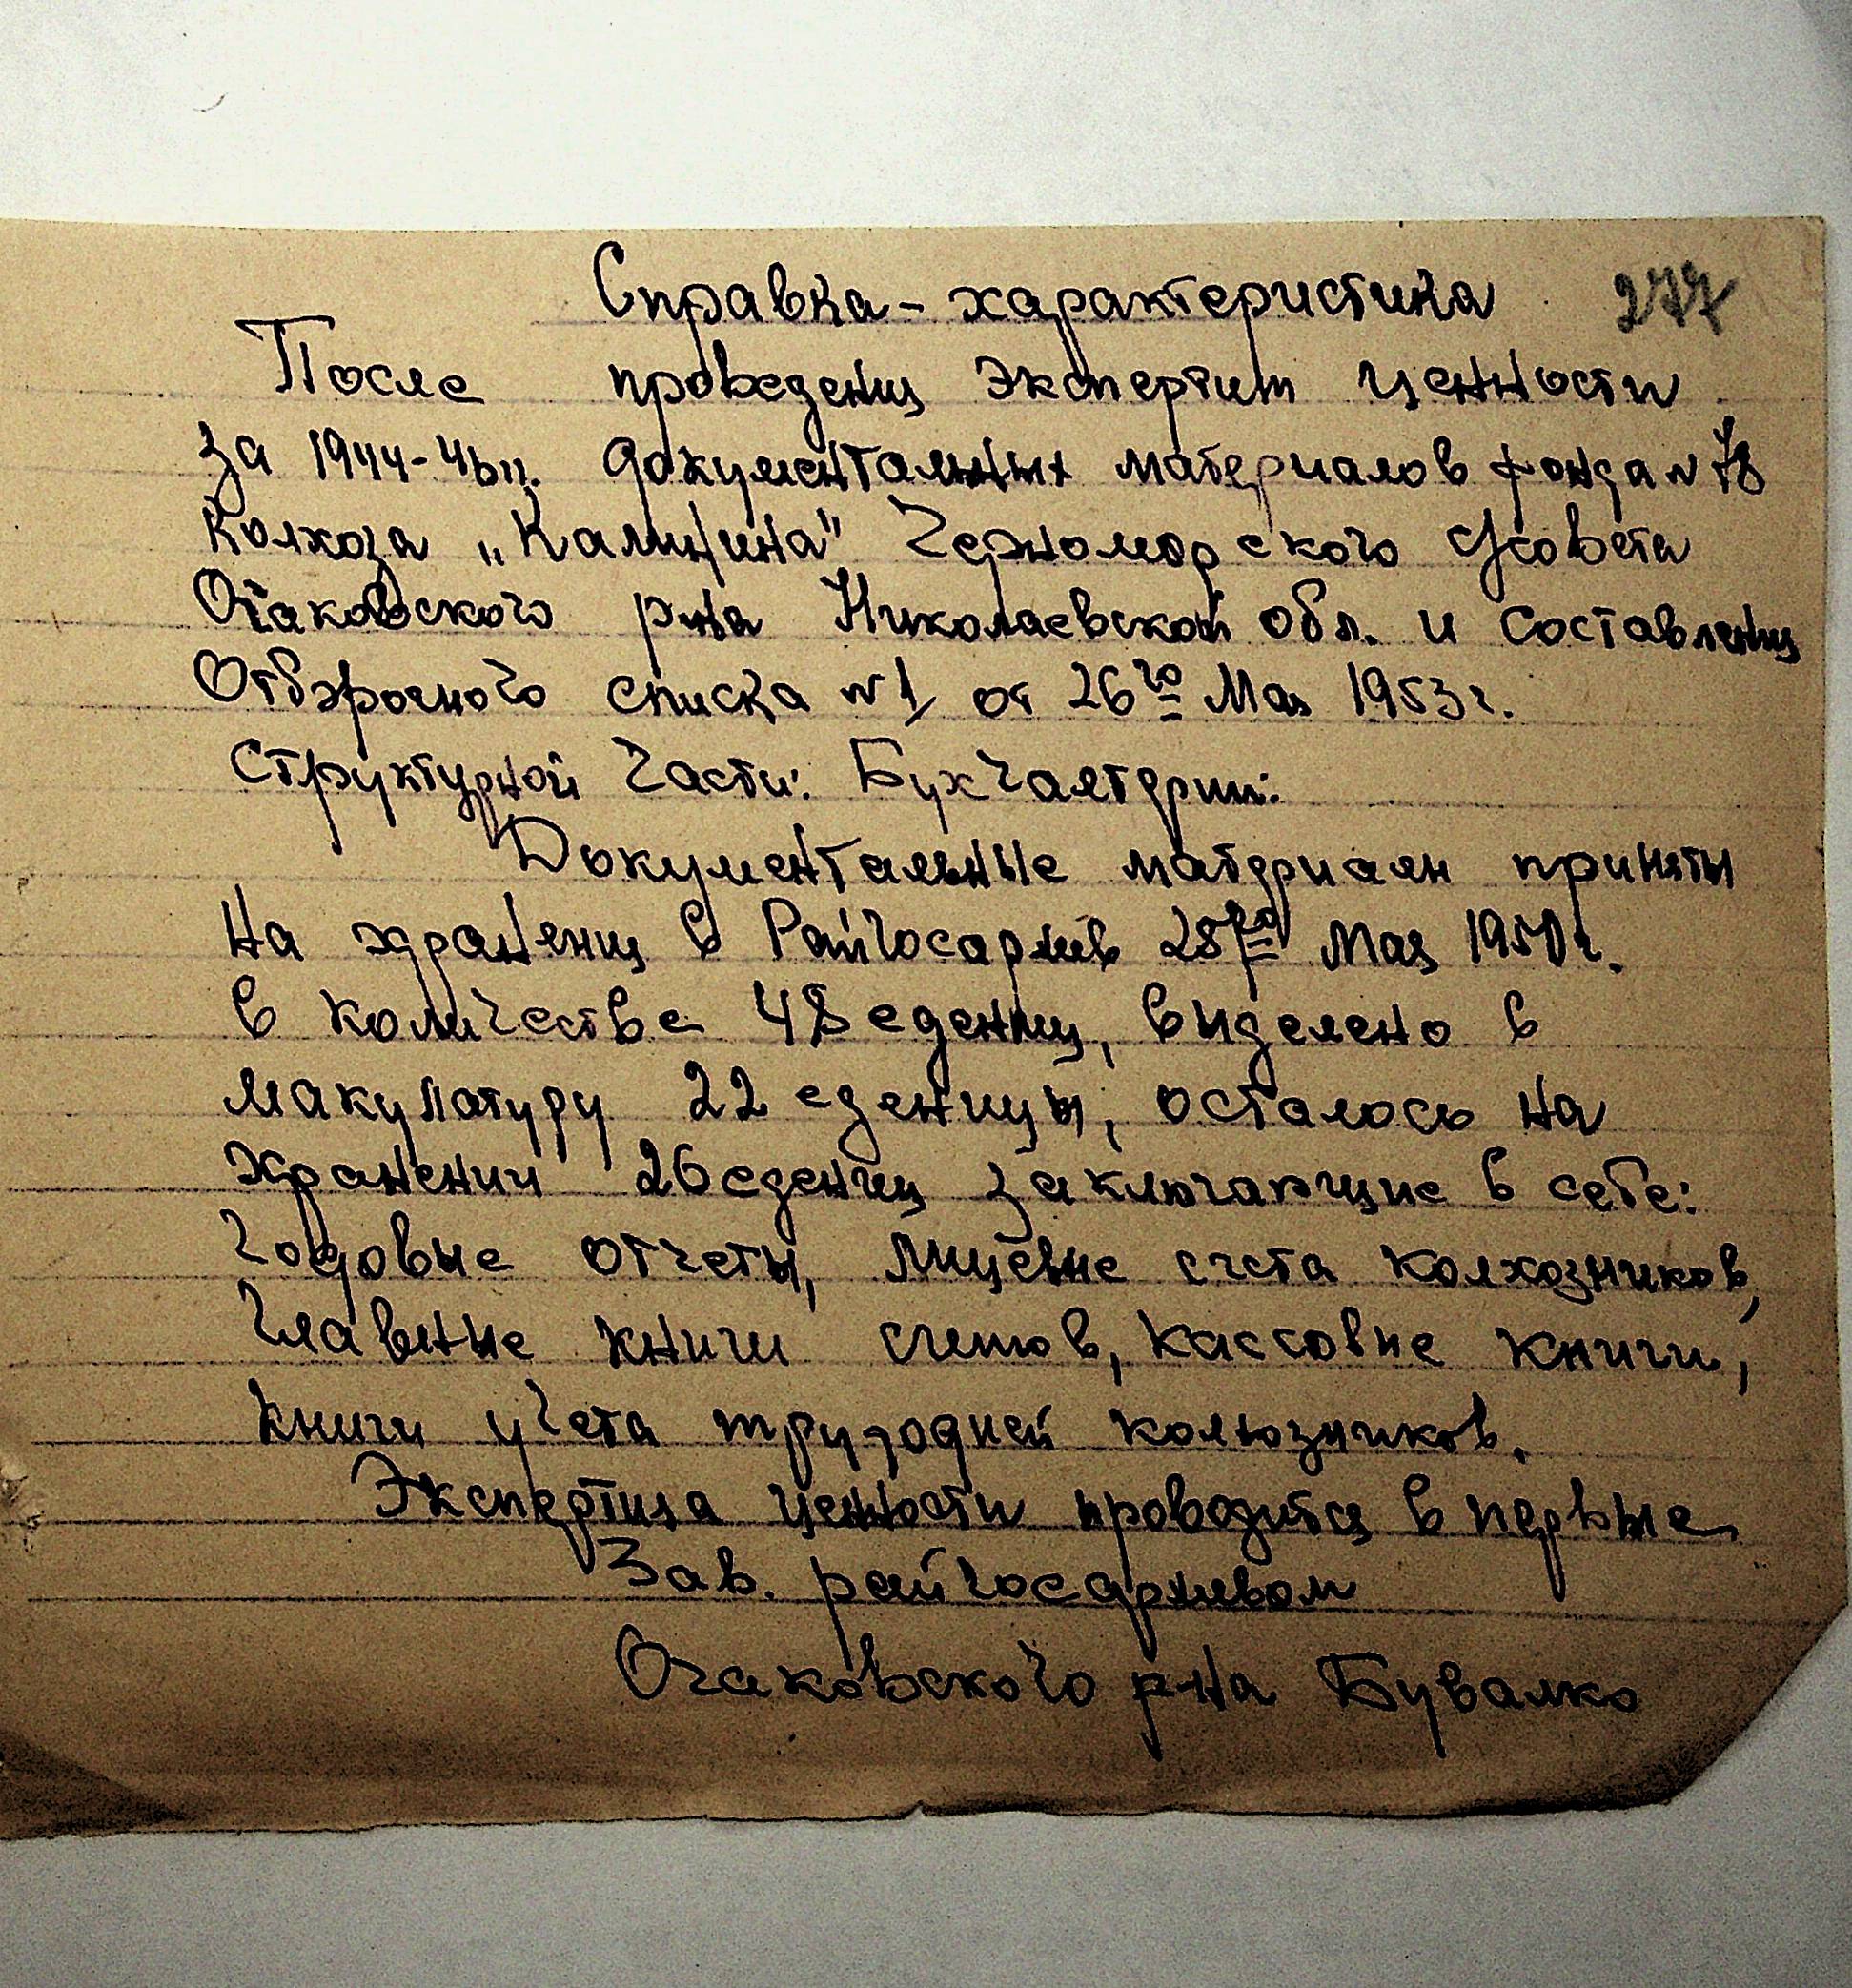 Справка - характеристика 277
После проведения экспертизы ценности
за 1944-46 гг. документальных материалов фонда № 78
Колхоза „Калинина" Черноморского с/совета
Очаковского р-на Николаевской обл. и составления
Отборочного списка № 1 от 26го Мая 1953 г.
Структурной части: Бухгалтерии:
Документальные материалы приняты
На хранения в Райгосархив 25го Мая 1950 г.
в количестве 48 едениц, выделено в
макулатуру 22 еденицы, осталось на
хранении 26 едениц заключающие в себе:
Годовые отчеты, лицевые счета колхозников,
Главные книги счетов, кассовые книги,
книги учета трудодней колхозников.
Экспертиза ценности проводится в первые
Зав. райгосархивом
Очаковского р-на Бувалко